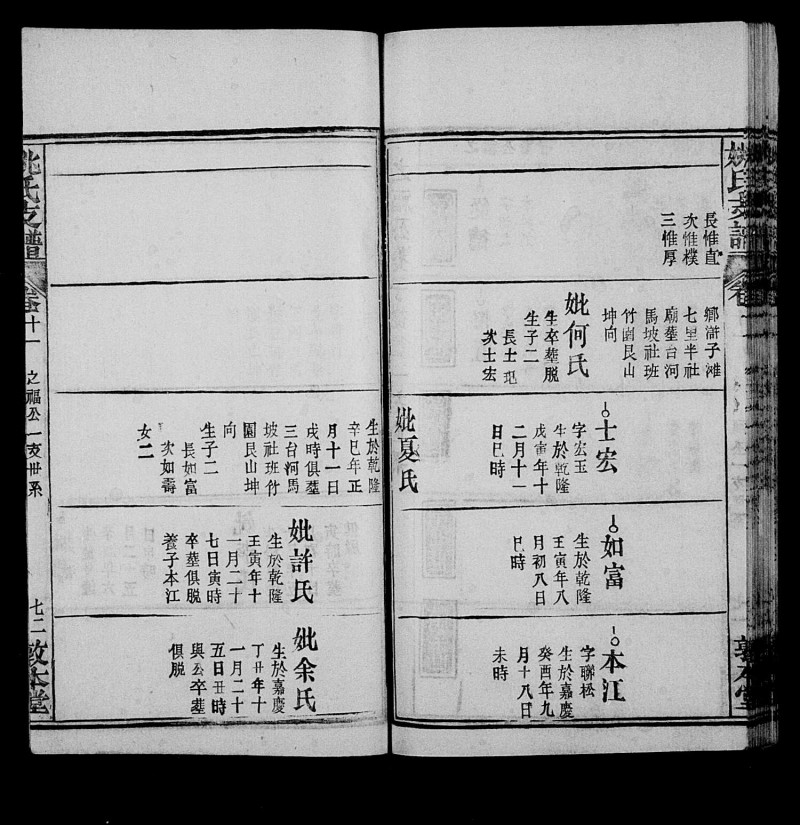 長惟直
次惟樸
三惟厚
鄉滸子灘
七里半社
廟塟台河
馬坡社班
竹園艮山
坤向
妣何氏
生卒塟脫
生子二
長士玘
次士宏
士宏
字宏玉
生於乾隆
戊寅年十
二月十一
日巳時
妣夏氏
生於乾隆
辛巳年正
月十一日
戌時俱塟
三台河馬
坡社班竹
園艮山坤
向
生子二
長如富
次如壽
女二
如富
生於乾隆
壬寅年八
月初八日
巳時
妣許氏
生於乾隆
壬寅年十
一月二十
七日寅時
卒塟俱脫
養子本江
本江
字聯松
生於嘉慶
癸酉年九
月十八日
未時
妣余氏
生於嘉慶
丁丑年十
一月二十
五日丑時
與公卒塟
俱脫
姚氏支譜
卷十一
之福公一支世系
七二
敦本堂